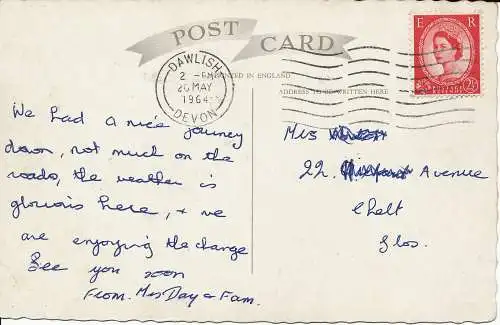 POST CARD
E R
DAWLISH
2 - PM
26 MAY
1964
DEVON
PRINTED IN ENGLAND
ADDRESS TO BE WRITTEN HERE
We had a nice journey
down, not much on the
roads, the weather is
glorious here, + we
are enjoying the change
See you soon
From. Mrs Day & Fam.
Mrs
22. Avenue
Chelt
Glos.